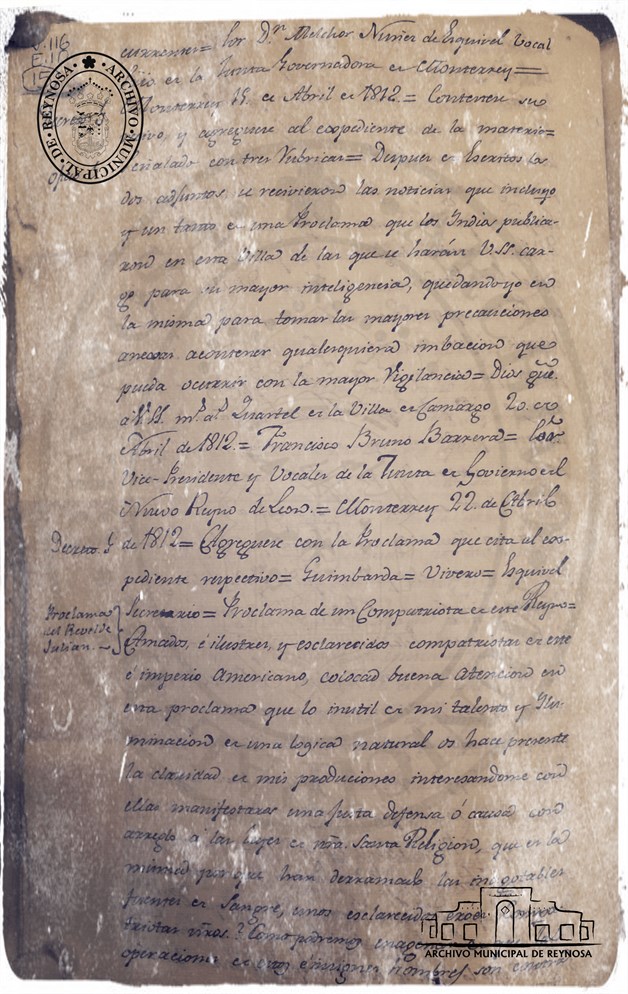 J. 116
E. 1
15
ARCHIVO MUNICIPAL DE REYNOSA
currente= por Dn. Melchor Nuñez de Esquivel Vocal
la Junta Governadora Monterrey=
Monterrey de Abril de 1812.= Contexte su
y agreguese al expediente de la materia=
Señalado con tres Rubricas= Despues de Escritos los
dos adjuntos se recivieron las noticias que incluyo
y un tanto de una Proclama que los Indios publica-
ron en esta Villa de las que se harán V.SS. car-
go para su mayor inteligencia, quedando yo en
la misma para tomar las mayores precauciones
acontener qualesquiera imbacion que
pueda ocurrir con la mayor Vigilancia= Dios gue.
a V.SS. ms. as. Quartel de la Villa de Camargo 20. de
Abril de 1812.= Francisco Bruno Barrera= Sor.
Vice-Presidente y Vocales de la Junta de Govierno del
Nuevo Reyno de Leon.= Monterrey 22. de Abril
Decreto. de 1812= Agreguese con la Proclama que cita al ex-
pediente respectivo= Guimbarda= Vivero= Esquivel
Proclama
del Revelde
Julian.
Secretario= Proclama de un Compatriota de este Reyno=
Amados, é ilustres, y esclarecidos compatriotas de este
é imperio Americano, colocad buena atencion en
esta proclama que lo inutil de mi talento y Ylu-
minacion de una logica natural os hace presente
la claridad de mis produciones interesandome con
ellas manifestaros una justa defensa ó causa con
arreglo á las Leyes de nra. Santa Religion, que es la
misma por que han derramado las inagotables
fuentes de Sangre, unos esclarecidos
triotas ntros.? Como podremos
operaciones de estos insignes hombres son
ARCHIVO MUNICIPAL DE REYNOSA